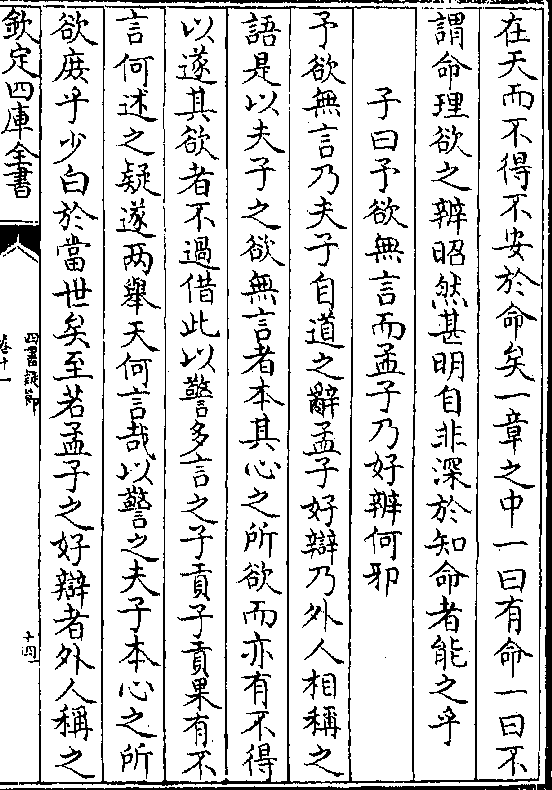 在天而不得不安於命矣一章之中一曰有命一曰不
謂命理欲之辨昭然甚明自非深於知命者能之乎
子曰予欲無言而孟子乃好辨何邪
予欲無言乃夫子自道之辭孟子好辯乃外人相稱之
語是以夫子之欲無言者本其心之所欲而亦有不得
以遂其欲者不過借此以警多言之子貢子貢果有不
言何述之疑遂两舉天何言哉以警之夫子本心之所
欲庻乎少白於當世矣至若孟子之好辯者外人稱之
欽定四庫全書
四書疑節
卷十一
十四